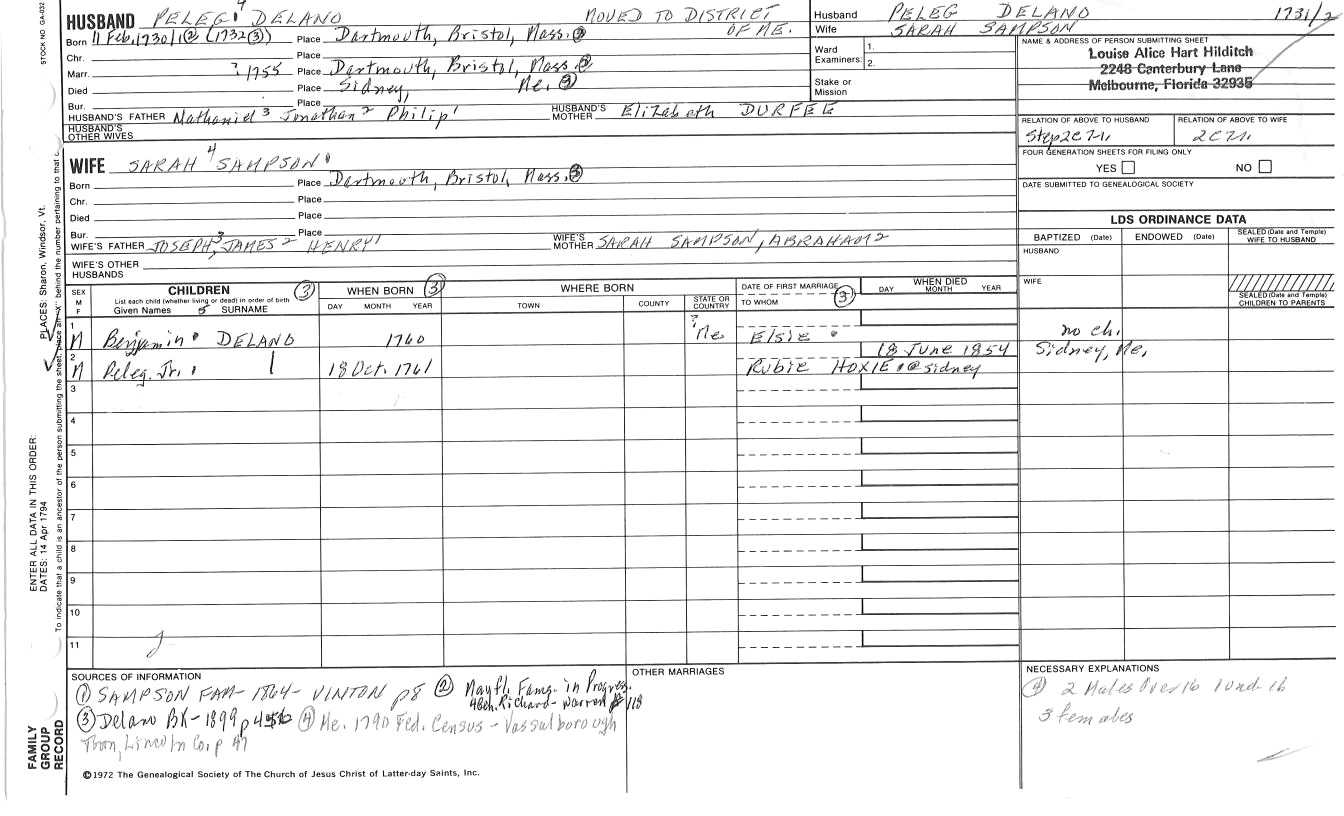 STOCK NO. GA-032
HUSBAND PELEG 4 DELANO MOVED TO DISTRICT OF ME.
Born 11 Feb. 1730/1 (2) (1732(3)) Place Dartmouth, Bristol, Mass. (2)
Chr. Place
Marr. ? 1755 Place Dartmouth, Bristol, Mass. (2)
Died Place Sidney, Me. (3)
Bur. Place
HUSBAND'S FATHER Nathaniel 3 Jonathan 2 Philip 1 HUSBAND'S MOTHER Elizabeth DURFEE
HUSBAND'S OTHER WIVES
Husband PELEG DELANO 1731/2
Wife SARAH SAMPSON
Ward Examiners: 1.
2.
Stake or Mission
NAME & ADDRESS OF PERSON SUBMITTING SHEET
Louise Alice Hart Hilditch
2248 Canterbury Lane
Melbourne, Florida 32935
RELATION OF ABOVE TO HUSBAND RELATION OF ABOVE TO WIFE
Step 2C7R 2C7R
FOUR GENERATION SHEETS FOR FILING ONLY
YES NO
DATE SUBMITTED TO GENEALOGICAL SOCIETY
WIFE SARAH 4 SAMPSON
Born Place Dartmouth, Bristol, Mass. (3)
Chr. Place
Died Place
Bur. Place
WIFE'S FATHER JOSEPH 3, JAMES 2 HENRY 1 WIFE'S MOTHER SARAH SAMPSON, ABRAHAM 2
WIFE'S OTHER HUSBANDS
LDS ORDINANCE DATA
BAPTIZED (Date) ENDOWED (Date) SEALED (Date and Temple) WIFE TO HUSBAND
HUSBAND
WIFE
SEALED (Date and Temple) CHILDREN TO PARENTS
SEX M F CHILDREN (3) List each child (whether living or dead) in order of birth Given Names 5 SURNAME
WHEN BORN (3) DAY MONTH YEAR
WHERE BORN TOWN COUNTY STATE OR COUNTRY
DATE OF FIRST MARRIAGE TO WHOM (3)
WHEN DIED DAY MONTH YEAR
1 M Benjamin DELANO 1760 ? Me. Elsie no ch.
2 M Peleg, Jr. 18 Oct. 1761 Rubie HOXIE @ Sidney 18 June 1854 Sidney, Me.
3
4
5
6
7
8
9
10
11
SOURCES OF INFORMATION
(1) SAMPSON FAM - 1864 - VINTON p8 (2) Mayfl. Fams. in Progress.
4Gen. Richard Warren p 118
(3) Delano BK - 1899 (4) Me. 1790 Fed. Census - Vassalborough
Town, Lincoln Co. p 47
OTHER MARRIAGES
NECESSARY EXPLANATIONS
(4) 2 Males Over 16 1 und 16
3 females
©1972 The Genealogical Society of The Church of Jesus Christ of Latter-day Saints, Inc.
FAMILY GROUP RECORD
ENTER ALL DATA IN THIS ORDER:
DATES: 14 Apr 1794
PLACES: Sharon, Windsor, Vt.
To indicate that a child is an ancestor of the person submitting the sheet, place an "X" behind the number pertaining to that c